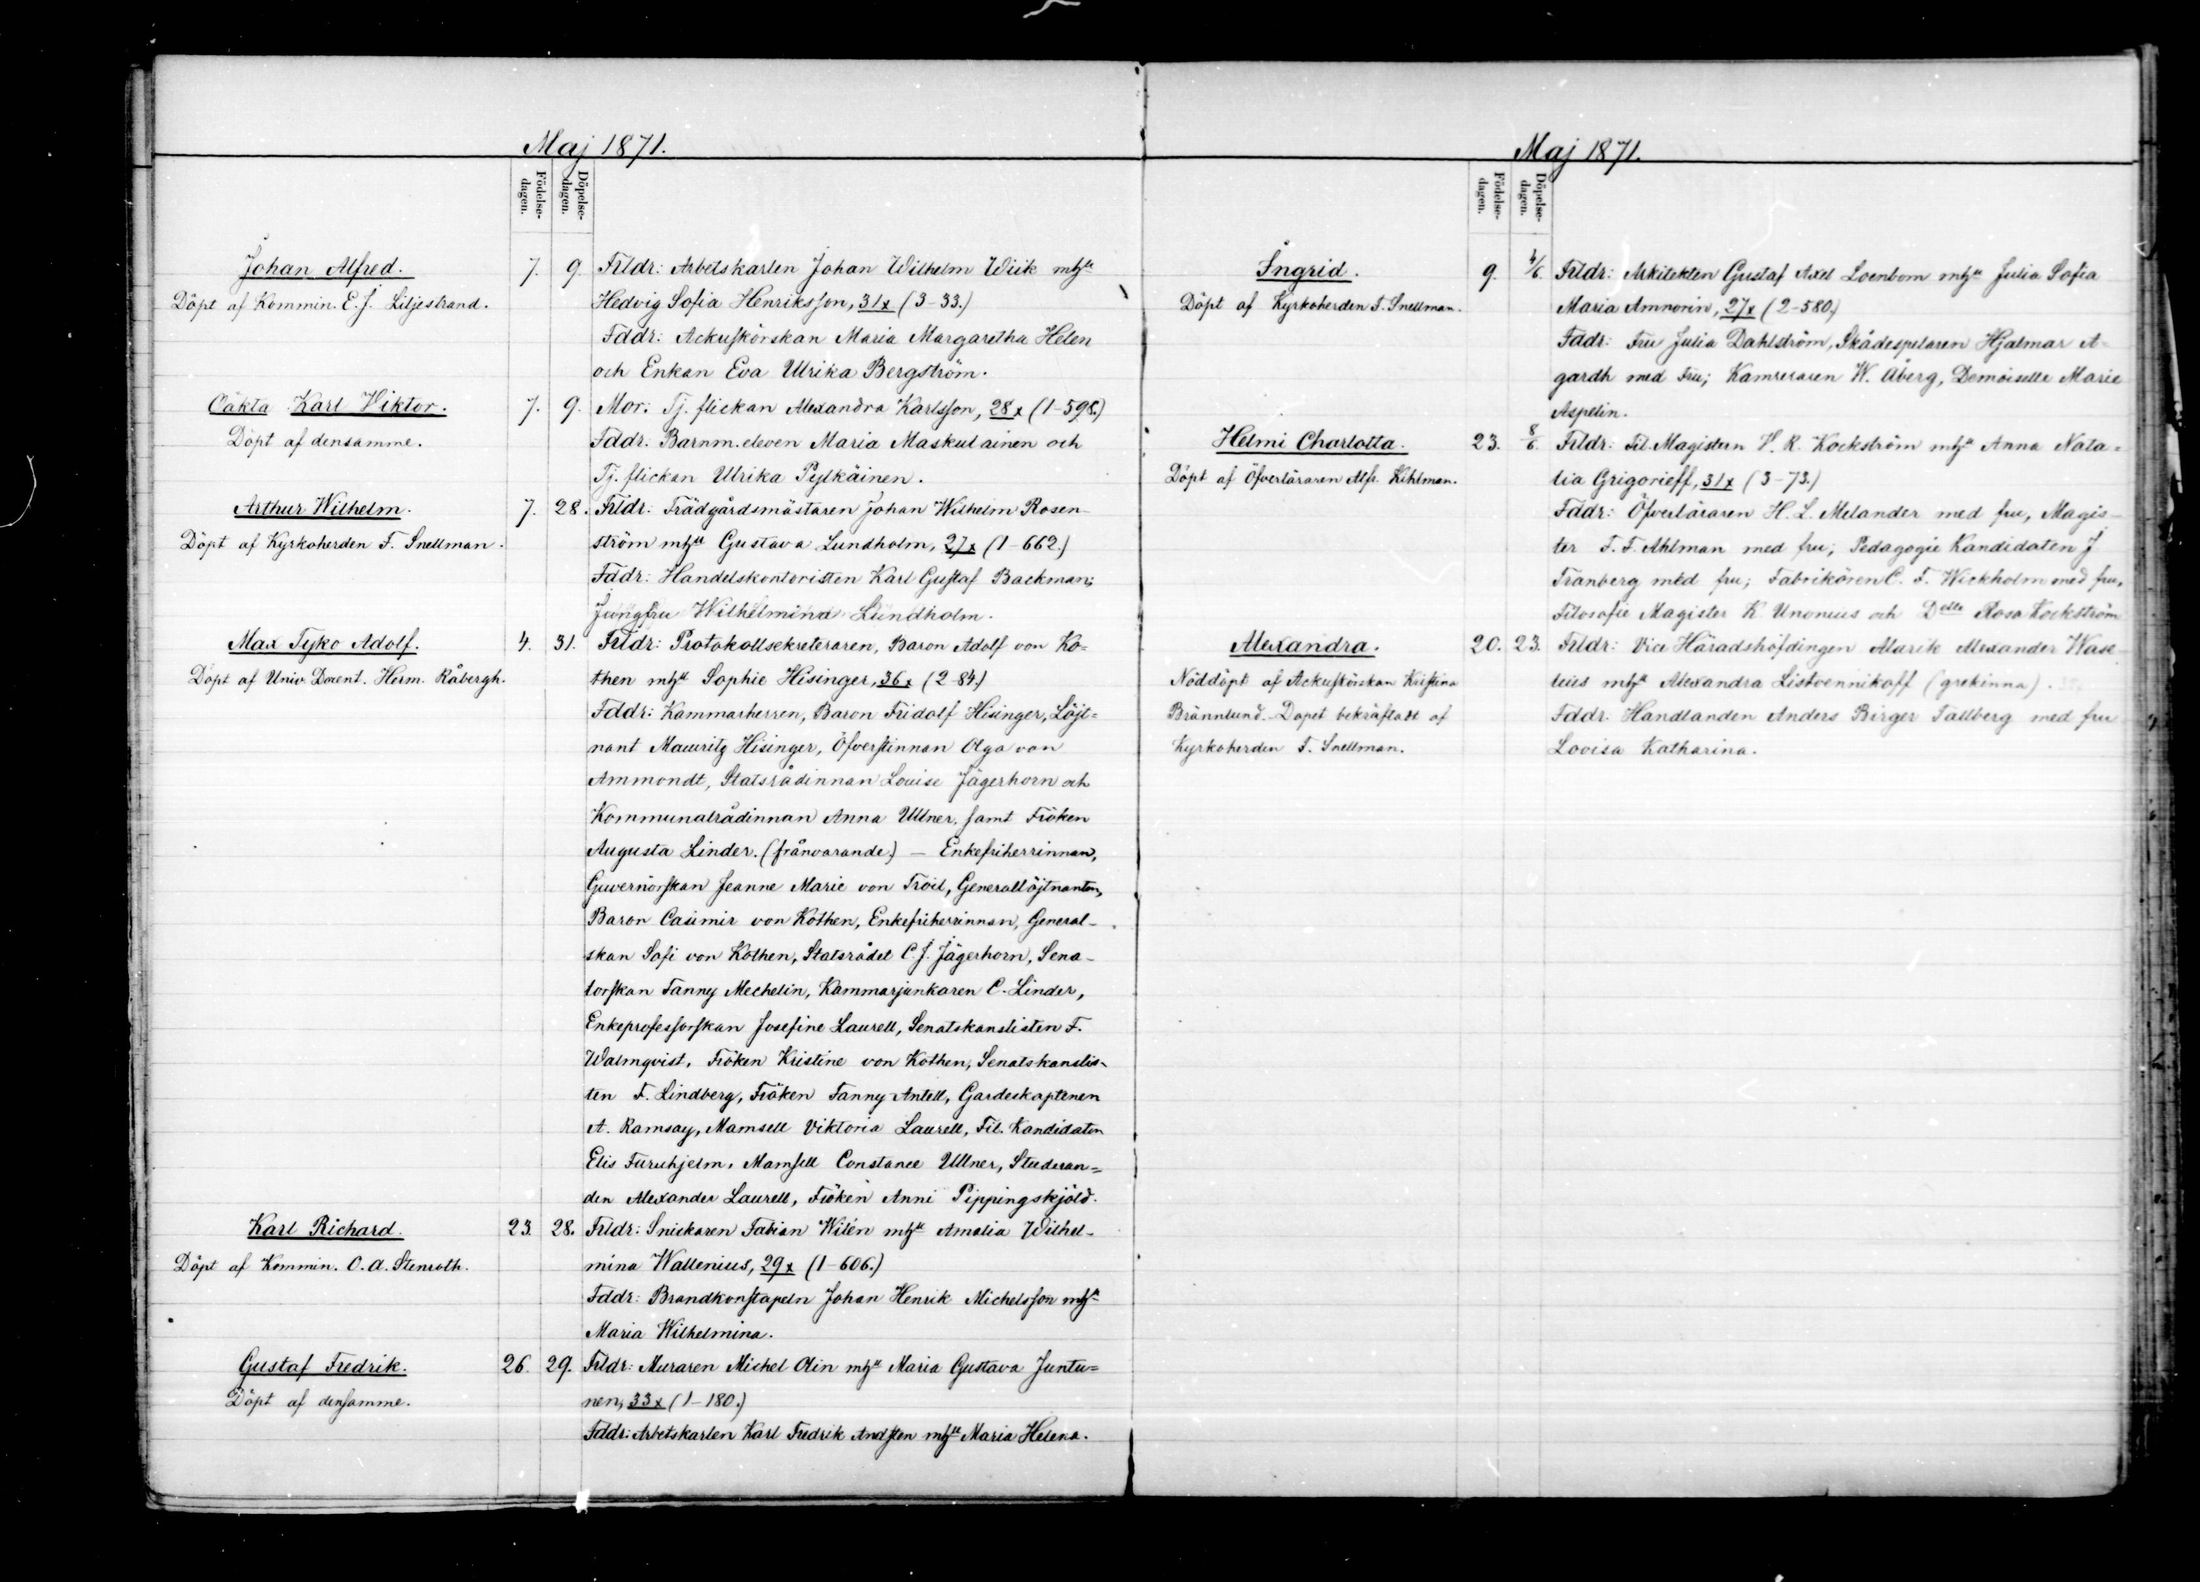 Maj 1871.
Födelse-dagen. Döpelse-dagen.
Johan Alfred. 7. 9. Frldr: Arbetskarlen Johan Wilhelm Wiik mhu
Döpt af Kommin. E. J. Liljestrand. Hedvig Sofia Henriksson, 31x (3-33.)
Fddr: Ackuskörskan Maria Margaretha Helen
och Enkan Eva Ulrika Bergström.
Oäkta Karl Viktor. 7. 9. Mor: Tj. flickan Alexandra Karlsson, 28x (1-598.)
Döpt af densamme. Fddr: Barnm. eleven Maria Maskulainen och
Tj. flickan Ulrika Pylkäinen.
Arthur Wilhelm. 7. 28. Frldr: Trädgårdsmästaren Johan Wilhelm Rosen-
Döpt af Kyrkoherden F. Snellman. ström mhu Gustava Lundholm, 27x (1-662.)
Fddr: Handelskontoristen Karl Gustaf Backman;
Jungfru Wilhelmina Lundholm.
Max Tyko Adolf. 4. 31. Frldr: Protokollsekreteraren, Baron Adolf von Ko=
Döpt af Univ. Docent. Herm. Råbergh. then mhu Sophie Hisinger, 36x (2-84.)
Fddr: Kammarherren, Baron Fridolf Hisinger, Löjt=
nant Mauritz Hisinger, Öfverstinnan Olga von
Ammondt, Statsrådinnan Louise Jägerhorn och
Kommunalrådinnan Anna Ullner, samt Fröken
Augusta Linder. (frånvarande) — Enkefriherrinnan,
Guvernörskan Jeanne Marie von Troil, Generallöjtnanten,
Baron Casimir von Kothen, Enkefriherrinnan, General-
skan Sofi von Kothen, Statsrådet C. J. Jägerhorn, Sena-
torskan Fanny Mechelin, Kammarjunkaren C. Linder,
Enkeprofessorskan Josefine Laurell, Senatskanslisten F.
Walmqvist, Fröken Kristine von Kothen, Senatskanslis-
ten F. Lindberg, Fröken Fanny Antell, Gardeskaptenen
A. Ramsay, Mamsell Viktoria Laurell, Fil. Kandidaten
Elis Furuhjelm, Mamsell Constance Ullner, Studeran=
den Alexander Laurell, Fröken Anni Pippingskjöld.
Karl Richard. 23. 28. Frldr: Snickaren Fabian Wilén mhu Amalia Wilhel-
Döpt af Kommin. O. A. Stenroth. mina Wallenius, 29x (1-606.)
Fddr: Brandkonstapeln Johan Henrik Michelsson mhu
Maria Wilhelmina.
Gustaf Fredrik. 26. 29. Frldr: Muraren Michel Olin mhu Maria Gustava Juntu=
Döpt af densamme. nen, 33x (1-180.)
Fddr: Arbetskarlen Karl Fredrik Andsten mhu Maria Helena.
Maj 1871.
Födelse-dagen. Döpelse-dagen.
Ingrid. 9. 4/6 Frldr: Arkitekten Gustaf Axel Loenbom mhu Julia Sofia
Döpt af Kyrkoherden F. Snellman. Maria Amnorin, 27x (2-580.)
Fddr: Fru Julia Dahlström, Skådespelaren Hjalmar A=
gardh med fru; Kamreraren W. Åberg, Demoiselle Marie
Aspelin.
Helmi Charlotta. 23. 8/6. Frldr: Fil. Magistern V. R. Kockström mhu Anna Nata=
Döpt af Öfverläraren Alfr. Kihlman. lia Grigorieff, 31x (3-73.)
Fddr: Öfverläraren H. L. Melander med fru, Magis-
ter F. F. Ahlman med fru; Pedagogie Kandidaten J
Tranberg med fru; Fabrikören C. F. Wickholm med fru,
Filosofie Magister K Unonius och Delle Rosa Kockström
Alexandra. 20. 23. Frldr: Vice Häradshöfdingen Alarik Alexander Wase
Nöddöpt af Ackuskörskan Kristina leius mhu Alexandra Listvennikoff (grekinna).
Brännlund. Dopet bekräftadt af Fddr: Handlanden Anders Birger Tallberg med fru
Kyrkoherden F. Snellman. Lovisa Katharina.